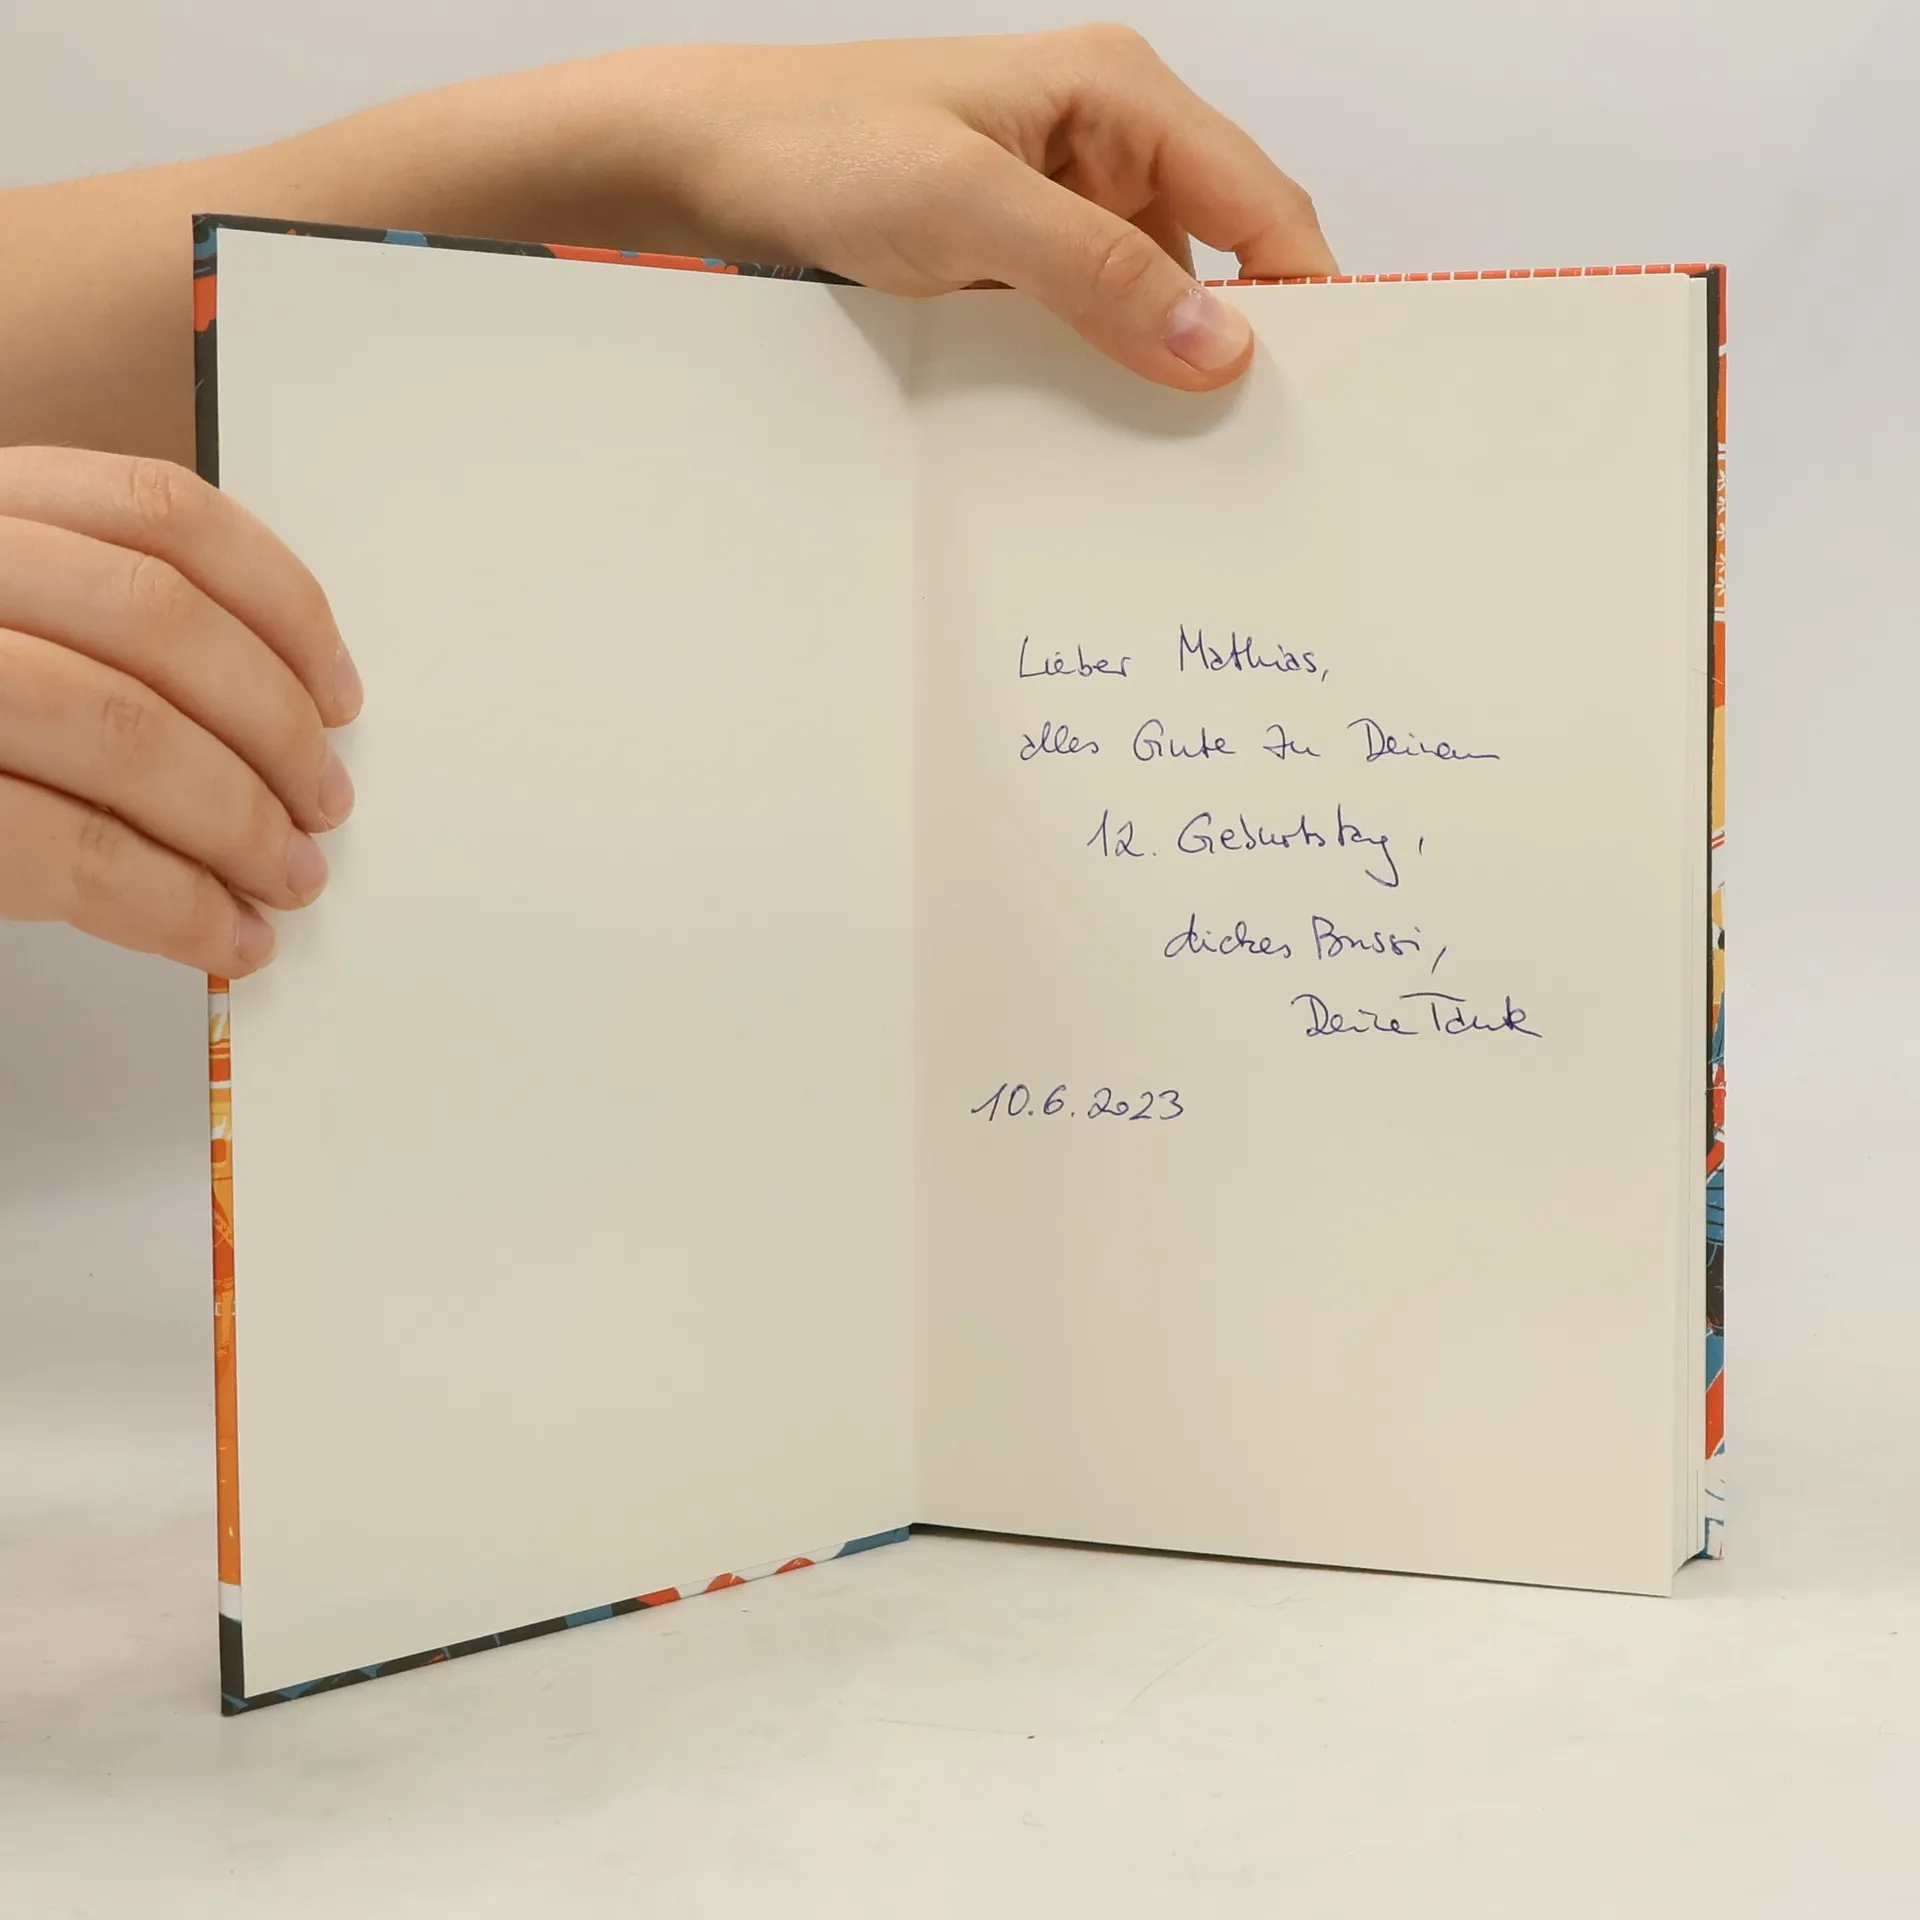 Lieber Mathias,
alles Gute zu Deinem
12. Geburtstag,
dickes Bussi,
Deine Tante
10.6.2023